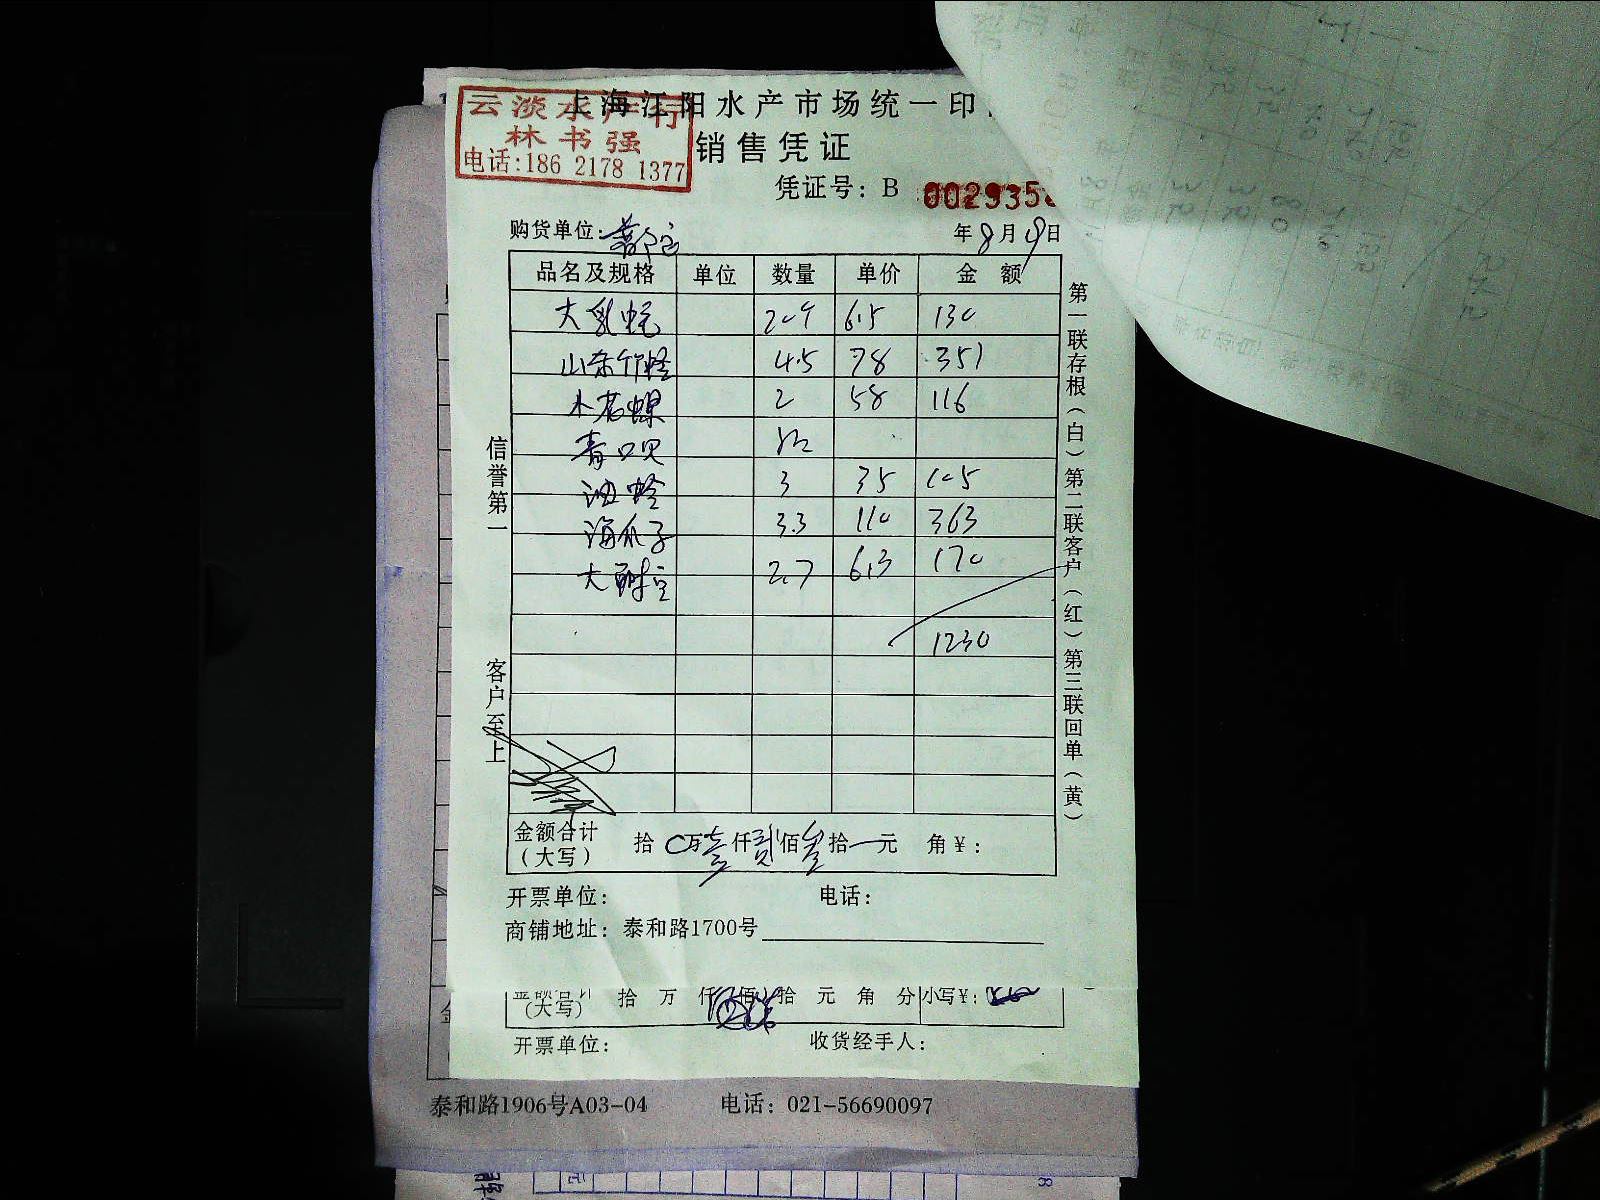 上海江阳水产市场统一印
云淡水产行
林书强
电话:186 2178 1377
销售凭证
凭证号: B 002935
购货单位:
年 8 月 19 日
品名及规格 单位 数量 单价 金额
大乳蛏 20个 6.5 130
山东竹蛏 4.5 78 351
小花螺 2 58 116
青口贝
油蛤 3 35 105
海瓜子 3.3 110 363
大 2.7 63 170
1230
金额合计
(大写) 拾 0万壹仟贰佰叁拾一元 角¥:
开票单位: 电话:
商铺地址: 泰和路1700号
信誉第一 客户至上
第一联存根(白)第二联客户(红)第三联回单(黄)
(大写) 拾 万 仟 佰 拾 元 角 分 小写¥:
开票单位: 收货经手人:
泰和路1906号A03-04 电话: 021-56690097